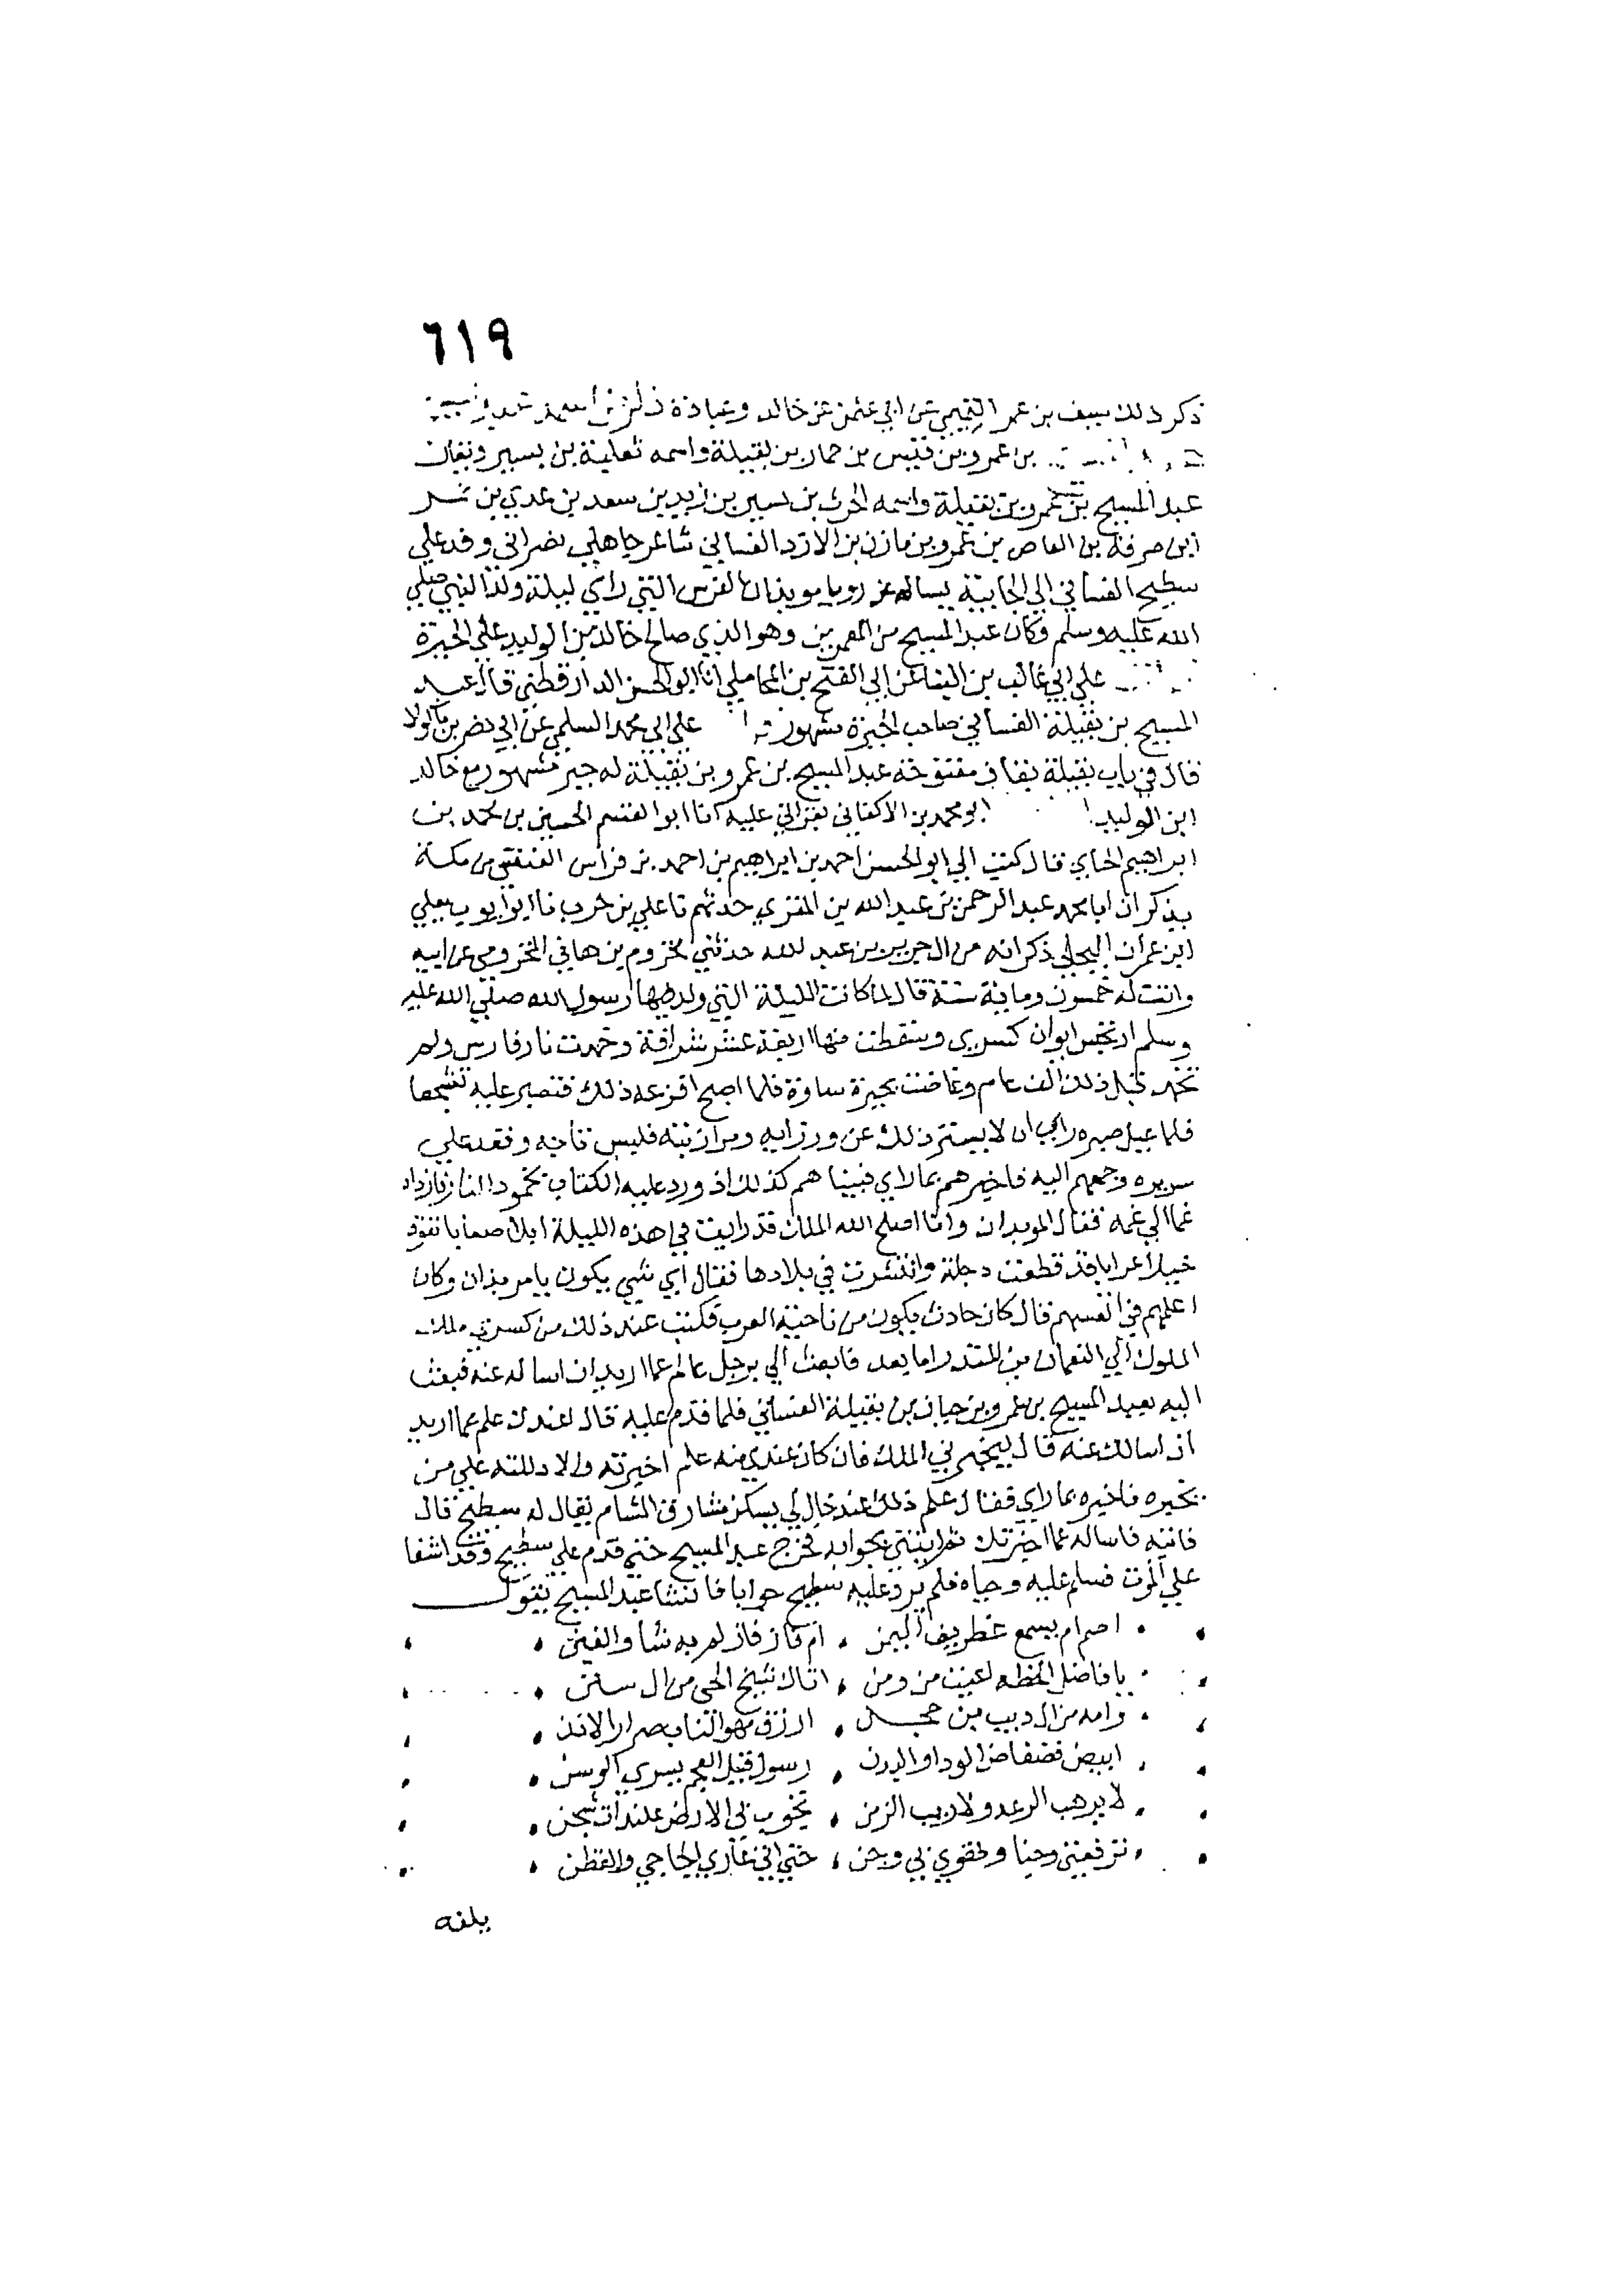 ٦١٩
ذكر ذلك سيف بن عمر التميمي عن ابي عثمن عن خالد وعبادة
بن عمرو بن قيس بن حمار بن بقيلة واسمه ثعلبة بن بسير ويقال
عبد المسيح بن عمرو بن بقيلة واسمه الحرث بن بسير بن زيد بن سعد بن عدي بن نمر
ابن صرفة بن العاص بن عمرو بن مازن بن الازد الغساني شاعر جاهلي نصراني وفد علي
سطيح الغساني الي الجابية يساله عن رويا موبذان الفرس التي راي ليلة ولد النبي صلي
الله عليه وسلم وكان عبد المسيح من المعمرين وهو الذي صالح خالد بن الوليد علي الحيرة
علي ابي غالب بن البنا عن ابي الفتح بن المحاملي انا ابو الحسن الدارقطني قال عبد
المسيح بن بقيلة الغساني صاحب الحيرة مشهور علي ابي محمد السلمي عن ابي نصر بن ماكولا
قال في باب بقيلة بقاف مفتوحة عبد المسيح بن عمرو بن بقيلة له خبر مشهور مع خالد
ابن الوليد ابو محمد بن الاكفاني بقراتي عليه انا ابو القسم الحسين بن محمد بن
ابراهيم الحناي قال كتب الي ابو الحسن احمد بن ابراهيم بن احمد بن فراس العبقسي من مكة
يذكر ان ابا محمد عبد الرحمن بن عبد الله بن المقري حدثهم نا علي بن حرب نا ابو ايوب يعلي
ابن عمران البجلي ذكر انه من ال جرير بن عبد الله حدثني مخزوم بن هاني المخزومي عن ابيه
واتت له خمسون وماية سنة قال لما كانت الليلة التي ولد فيها رسول الله صلي الله عليه
وسلم ارتجس ايوان كسري وسقطت منها اربعة عشر شرافة وخمدت نار فارس ولم
تخمد قبل ذلك الف عام وغاضت بحيرة ساوة فلما اصبح افزعه ذلك فتصبر عليه تشجعا
فلما عيل صبره راي ان لا يستر ذلك عن وزرايه ومرازبته فلبس تاجه وقعد علي
سريره وجمعهم اليه فاخبرهم بما راي فبينا هم كذلك اذ ورد عليه الكتاب بخمود النار فازداد
غما الي غمه فقال الموبدان وانا اصلح الله الملك قد رايت في هذه الليلة ابلا صعابا تقود
خيلا عرابا قد قطعت دجلة وانتشرت في بلادها فقال اي شي يكون يا موبذان وكان
اعلمهم في انفسهم قال كان حادث يكون من ناحية العرب فكتب عند ذلك من كسري ملك
الملوك الي النعمان بن المنذر اما بعد فابعث الي برجل عالم عما اريد ان اساله عنه فبعث
اليه بعبد المسيح بن عمرو بن حيان بن بقيلة الغساني فلما قدم عليه قال اعندك علم عما اريد
ان اسالك عنه قال ليخبرني الملك فان كان عندي منه علم اخبرته والا دللته علي من
يخبره فاخبره بما راي فقال علم ذلك عند خال لي يسكن مشارق الشام يقال له سطيح قال
فاتيه فاساله عما اخبرتك ثم ايتني بجوابه فخرج عبد المسيح حتي قدم علي سطيح وقد اشفا
علي الموت فسلم عليه وحياه فلم يرد عليه سطيح جوابا فانشا عبد المسيح يقول
اصم ام يسمع غطريف اليمن ، ام فاز فازلم به شاو العنن
يا فاضل الخطة اعيت من ومن ، اتاك شيخ الحي من ال سنن
وامه من ال ديب بن حجن ، ازرق مهو الناب صرار الاذن
ابيض فضفاض الردا والبدن ، رسول قيل العجم يسري الوسن
لا يرهب الرعد ولا ريب الزمن ، تجوب بي الارض علنداة شجن
ترفعني وجنا وتهوي بي وجن ، حتي اتي عاري الجاجي والقطن
يلفه